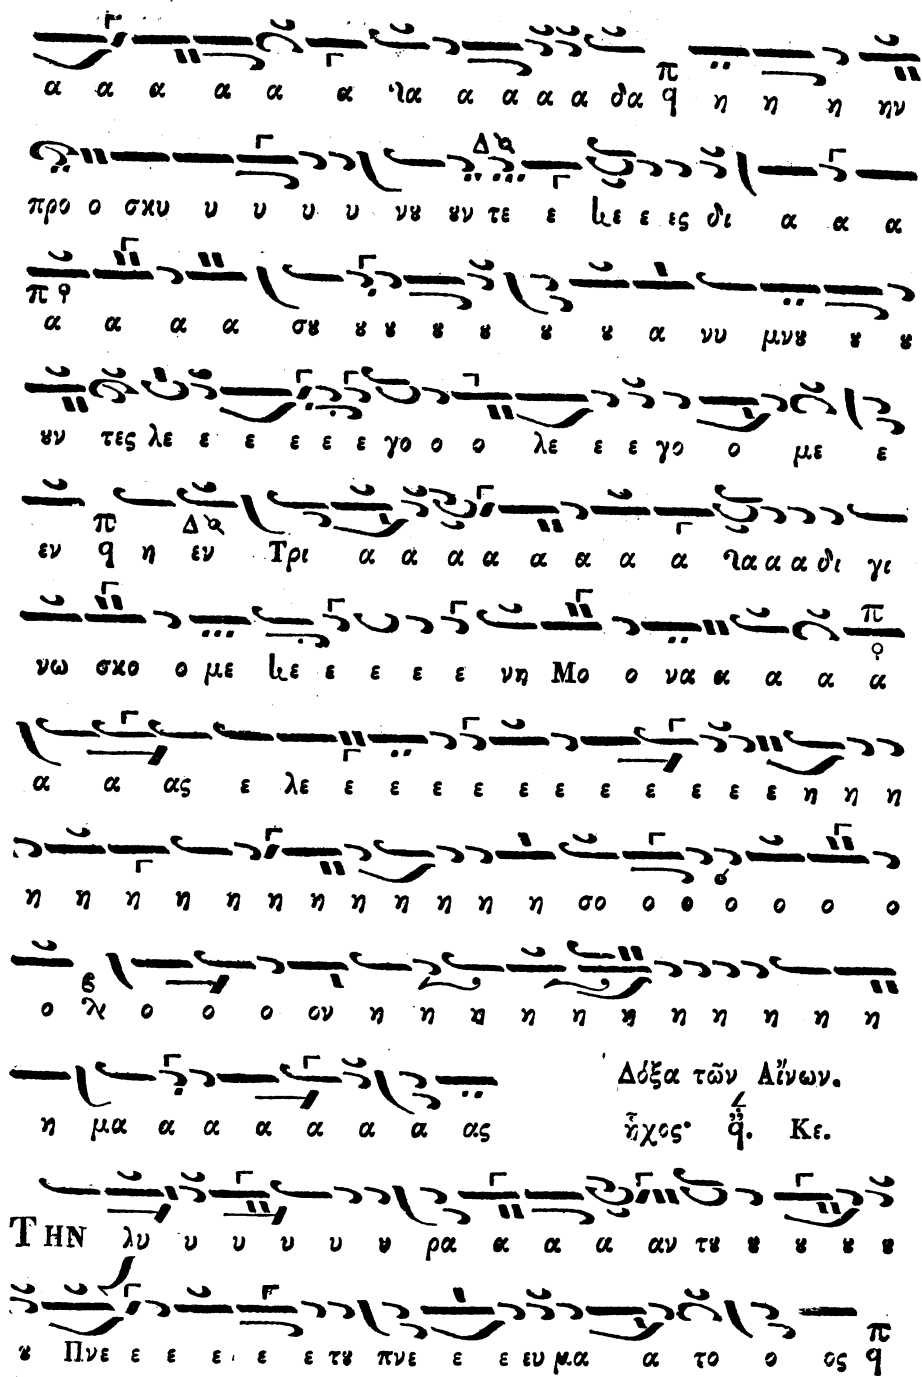 α α α α α α ϊα α α α α δα π q η η η ην
προ ο σκυ υ υ υ υ νȣ ȣν τε ε κε ε ες δι α α α
α α α α σȣ ȣ ȣ ȣ ȣ ȣ ȣ α νυ μνȣ ȣ ȣ
ȣν τες λε ε ε ε ε ε γο ο ο λε ε ε γο ο με ε
εν π q η εν Τρι α α α α α α α α ϊα α α δι γι
νω σκο ο με κε ε ε ε ε νη Μο ο να α α α α
α α ας ε λε ε ε ε ε ε ε ε ε ε ε ε η η η
η η η η η η η η η η η η σο ο ο ο ο ο ο
ο ο ο ο ον η η η η η η η η η η η
η μα α α α α α α ας
Δόξα τῶν Αἴνων.
ἦχος q. Κε.
ΤΗΝ λυ υ υ υ υ υ ρα α α α αν τȣ ȣ ȣ ȣ ȣ
ȣ Πνε ε ε ε ε ε τȣ πνε ε ε ευ μα α το ο ος π q